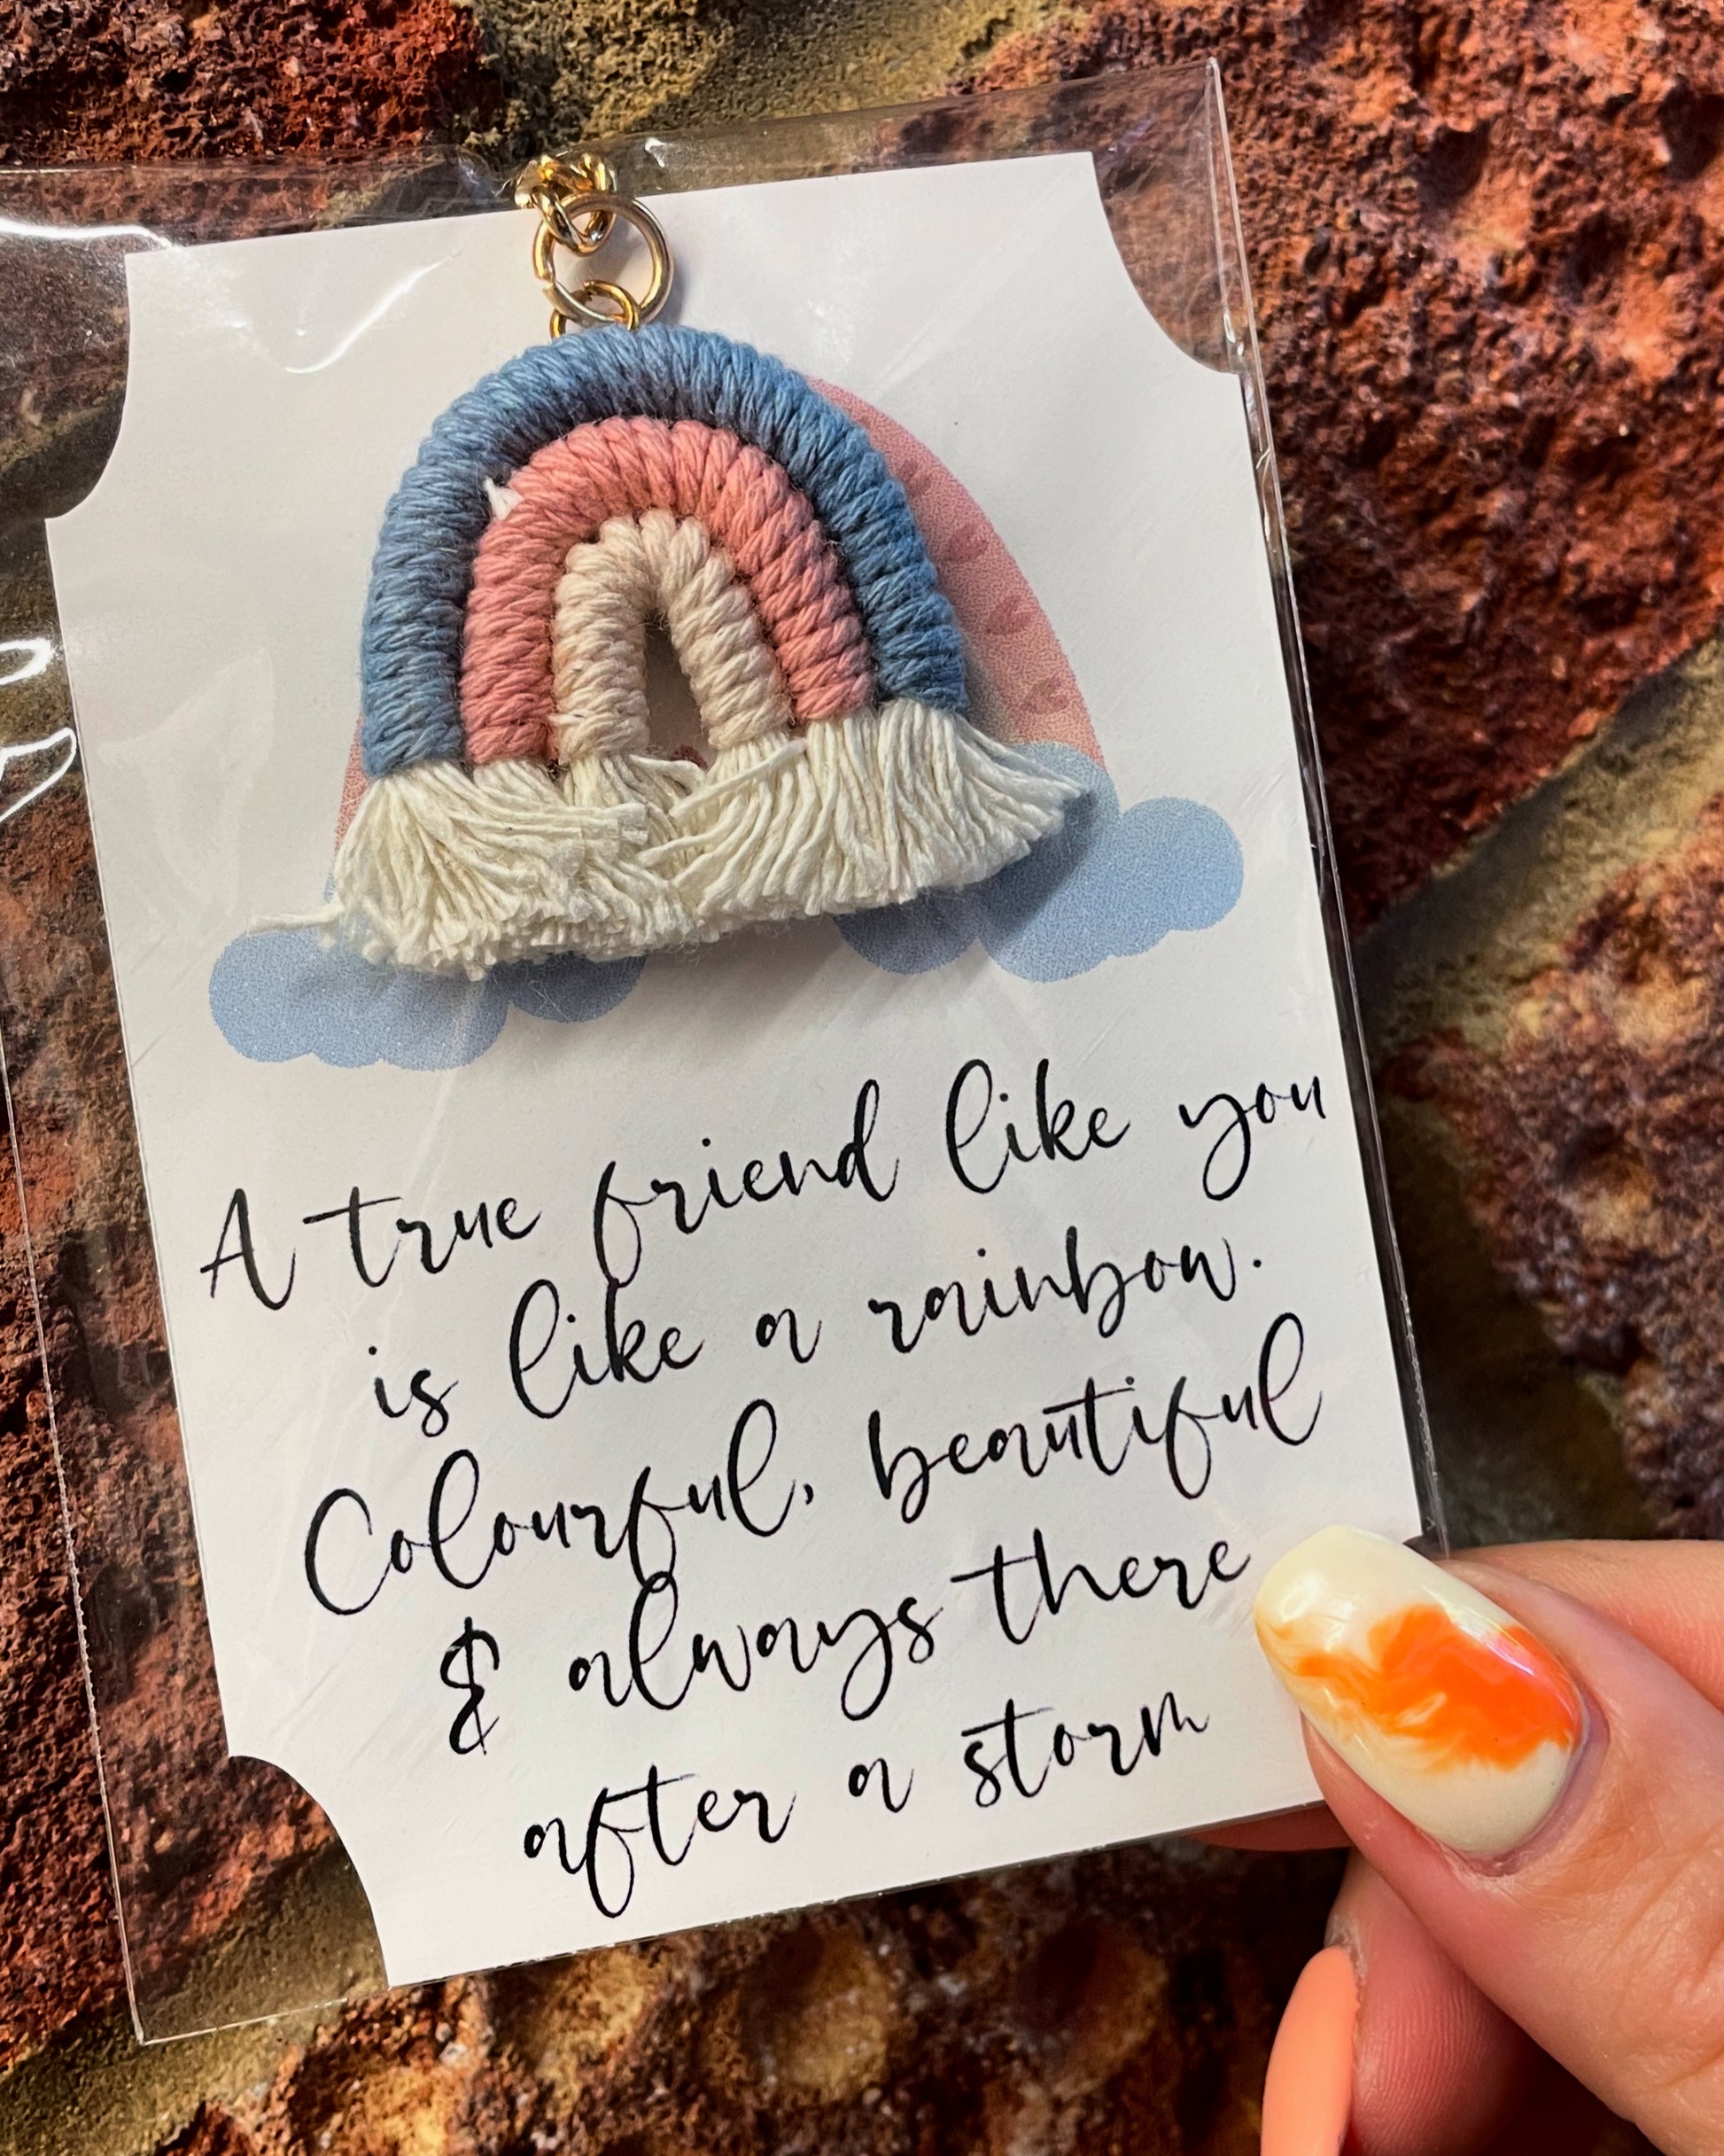 A true friend like you
is like a rainbow.
Colourful, beautiful
& always there
after a storm